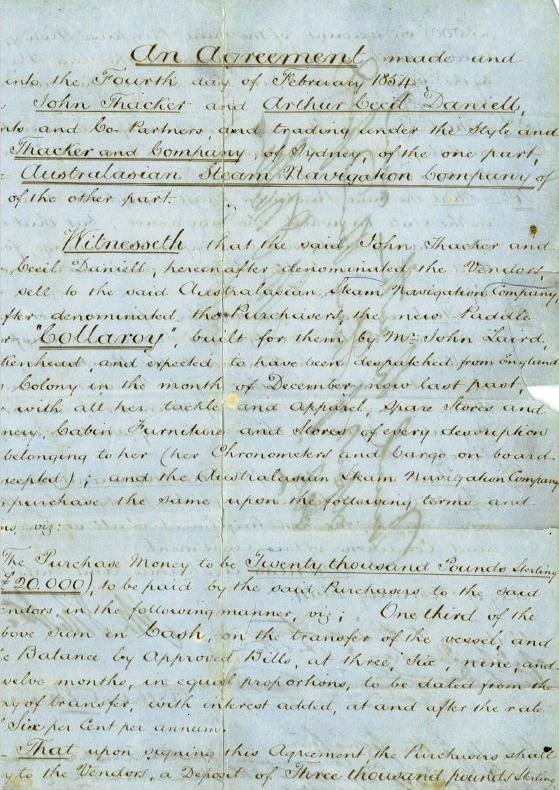 An Agreement made and
into the Fourth day of February 1854
John Thacker and Arthur Cecil Daniell,
nts and Co-Partners, and trading under the Style and
Thacker and Company, of Sydney, of the one part,
Australasian Steam Navigation Company of
of the other part.
Witnesseth that the said John Thacker and
Cecil Daniell, hereinafter denominated the Vendors,
sell to the said Australasian Steam Navigation Company
fter denominated the Purchasers, the new Paddle
r "Collaroy", built for them by Mr. John Laird,
kenhead, and expected to have been despatched from England
Colony in the month of December now last past,
with all her tackle and apparel, spare Stores and
new, Cabin Furniture and Stores of every description
belonging to her (her Chronometers and Cargo on board
xcepted); and the Australasian Steam Navigation Company
purchase the same upon the following terms and
ns, viz:
The Purchase Money to be Twenty thousand Pounds Sterling
£20.000), to be paid by the said Purchasers to the said
endors in the following manner, viz; One third of the
bove sum in Cash, on the transfer of the vessel, and
e Balance by Approved Bills, at three, Six, nine, and
welve months, in equal proportions, to be dated from the
ay of transfer, with interest added, at and after the rate
Six per Cent per annum.
That upon signing this Agreement, the Purchasers shall
y to the Vendors, a Deposit of Three thousand pounds Sterling